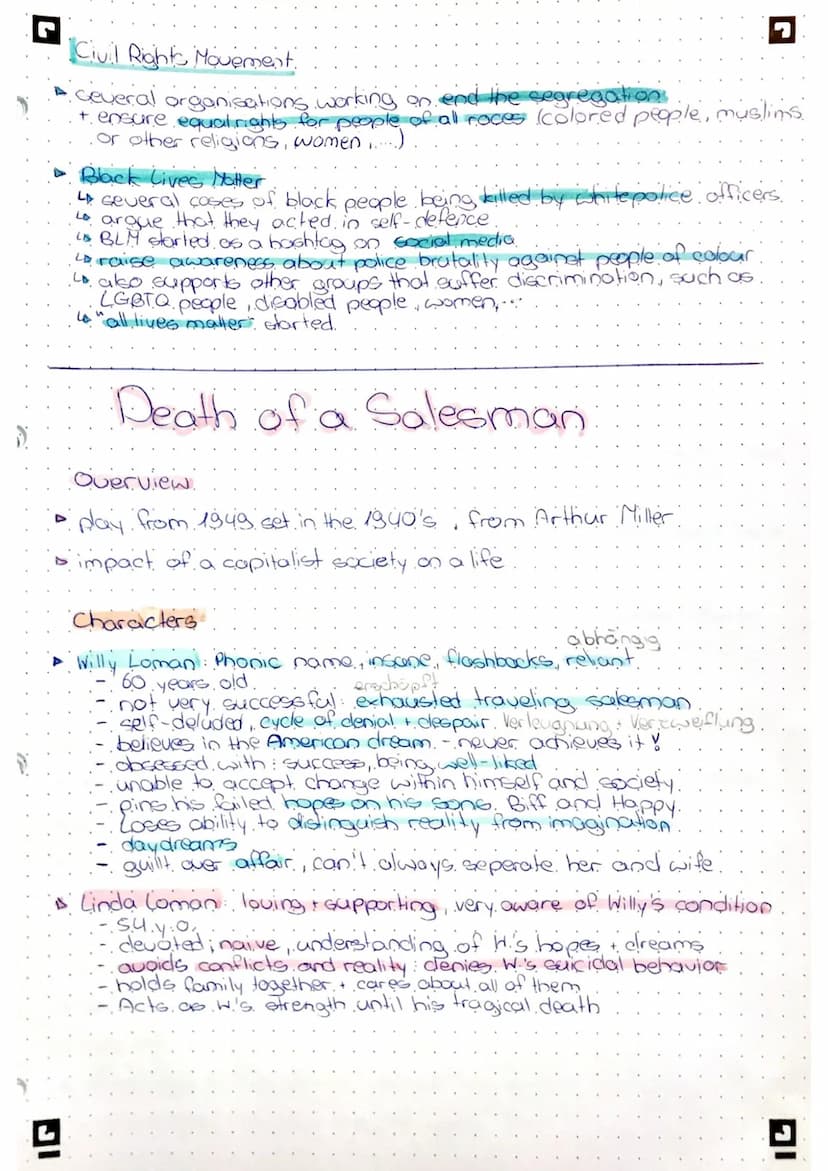 Civil Rights Movement
several organisations working on end the segregation
+ ensure equal rights for people of all races (colored people, muslims
or other religions, women, ...)
Black Lives Matter
↳ several cases of black people being killed by white police officers
↳ argue that they acted in self-defence
↳ BLM started as a hashtag on social media
↳ raise awareness about police brutality against people of colour
↳ also supports other groups that suffer discrimination, such as
LGBTQ people, disabled people, women, ...
↳ "all lives matter" started
Death of a Salesman
Overview
play from 1949 set in the 1940's, from Arthur Miller
impact of a capitalist society on a life
Characters
abhängig
Willy Loman: Phonic name, insane, flashbacks, reliant
- 60 years old
erschöpft
- not very successful: exhausted traveling salesman
- self-deluded, cycle of denial + despair Verleugnung + Verzweiflung
- believes in the American dream - never achieves it!
- obsessed with: success, being well-liked
- unable to accept change within himself and society
- pins his failed hopes on his sons, Biff and Happy
- Loses ability to distinguish reality from imagination
- daydreams
- guilt over affair, can't always seperate her and wife
Linda Loman: loving + supporting, very aware of Willy's condition
- 54 y.o.
- devoted; naive, understanding of W.'s hopes + dreams
- avoids conflicts and reality: denies W.'s suicidal behavior
- holds family together + cares about all of them
- Acts as W.'s strength until his tragical death